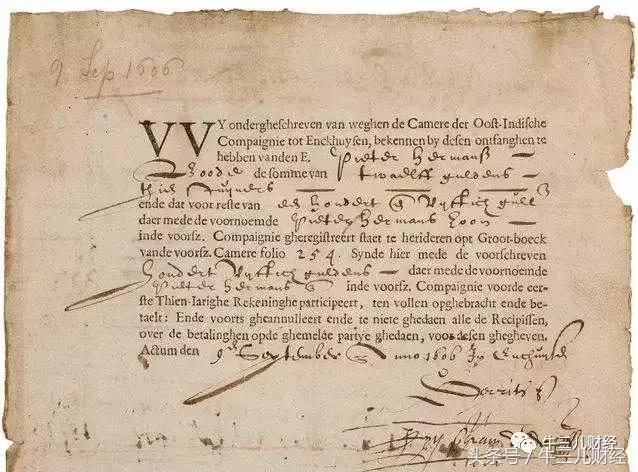 9 Sep 1606
VVY ondergheschreven van weghen de Camere der Oost-Indische
Compaignie tot Enckhuysen, bekennen by desen ontfanghen te
hebben vanden E. Pieter Hermansz
Boode de somme van twaelff guldens
ende dat voor reste van een hondert Vijftich gull
daer mede de voornoemde Pieter Hermans zoon
inde voorsz. Compaignie gheregistreert staet te herideren opt Groot-boeck
vande voorsz. Camere folio 254. Synde hier mede de voorschreven
hondert Vijftich guldens daer mede de voornoemde
Pieter Hermans inde voorsz. Compaignie voorde eer-
ste Thien-Iarighe Rekeninghe participeert, ten vollen opghebracht ende be-
taelt: Ende voorts gheannulleert ende te niete ghedaen alle de Recipissen,
over de betalinghen opde ghemelde partye ghedaen, voor desen ghegheven.
Actum den 9en September Anno 1606
牛三儿财经
头条号/牛三儿财经